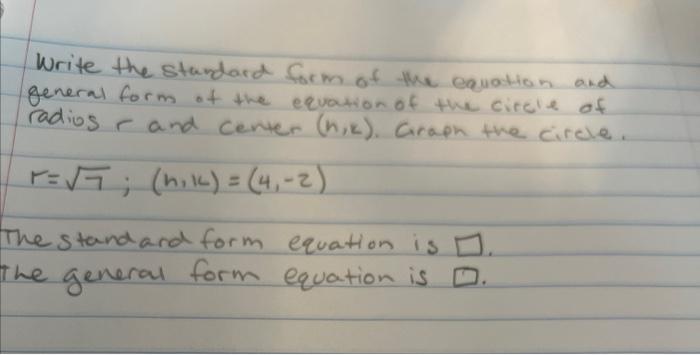 Write the standard form of the equation and
general form of the equation of the circle of
radios r and center (h,k). Graph the circle.
r=√7; (h,k) = (4,-2)
The standard form equation is □.
The general form equation is □.